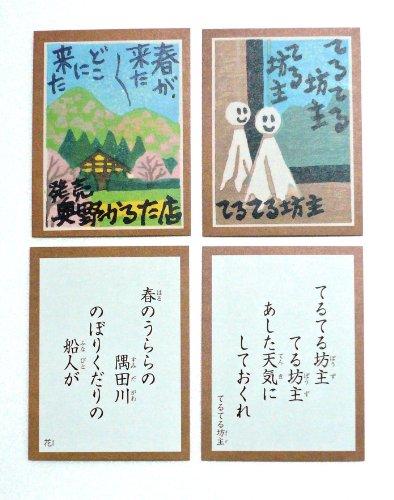 春が
来た〳〵
どこに
来た
発売
奥野かるた店
てるてる
坊主
てる
坊主
てるてる坊主
春のうららの
はる
隅田川
すみだがわ
のぼりくだりの
船人が
ふなびと
花
てるてる坊主
ぼうず
てる坊主
ぼうず
あした天気に
てんき
しておくれ
てるてる坊主